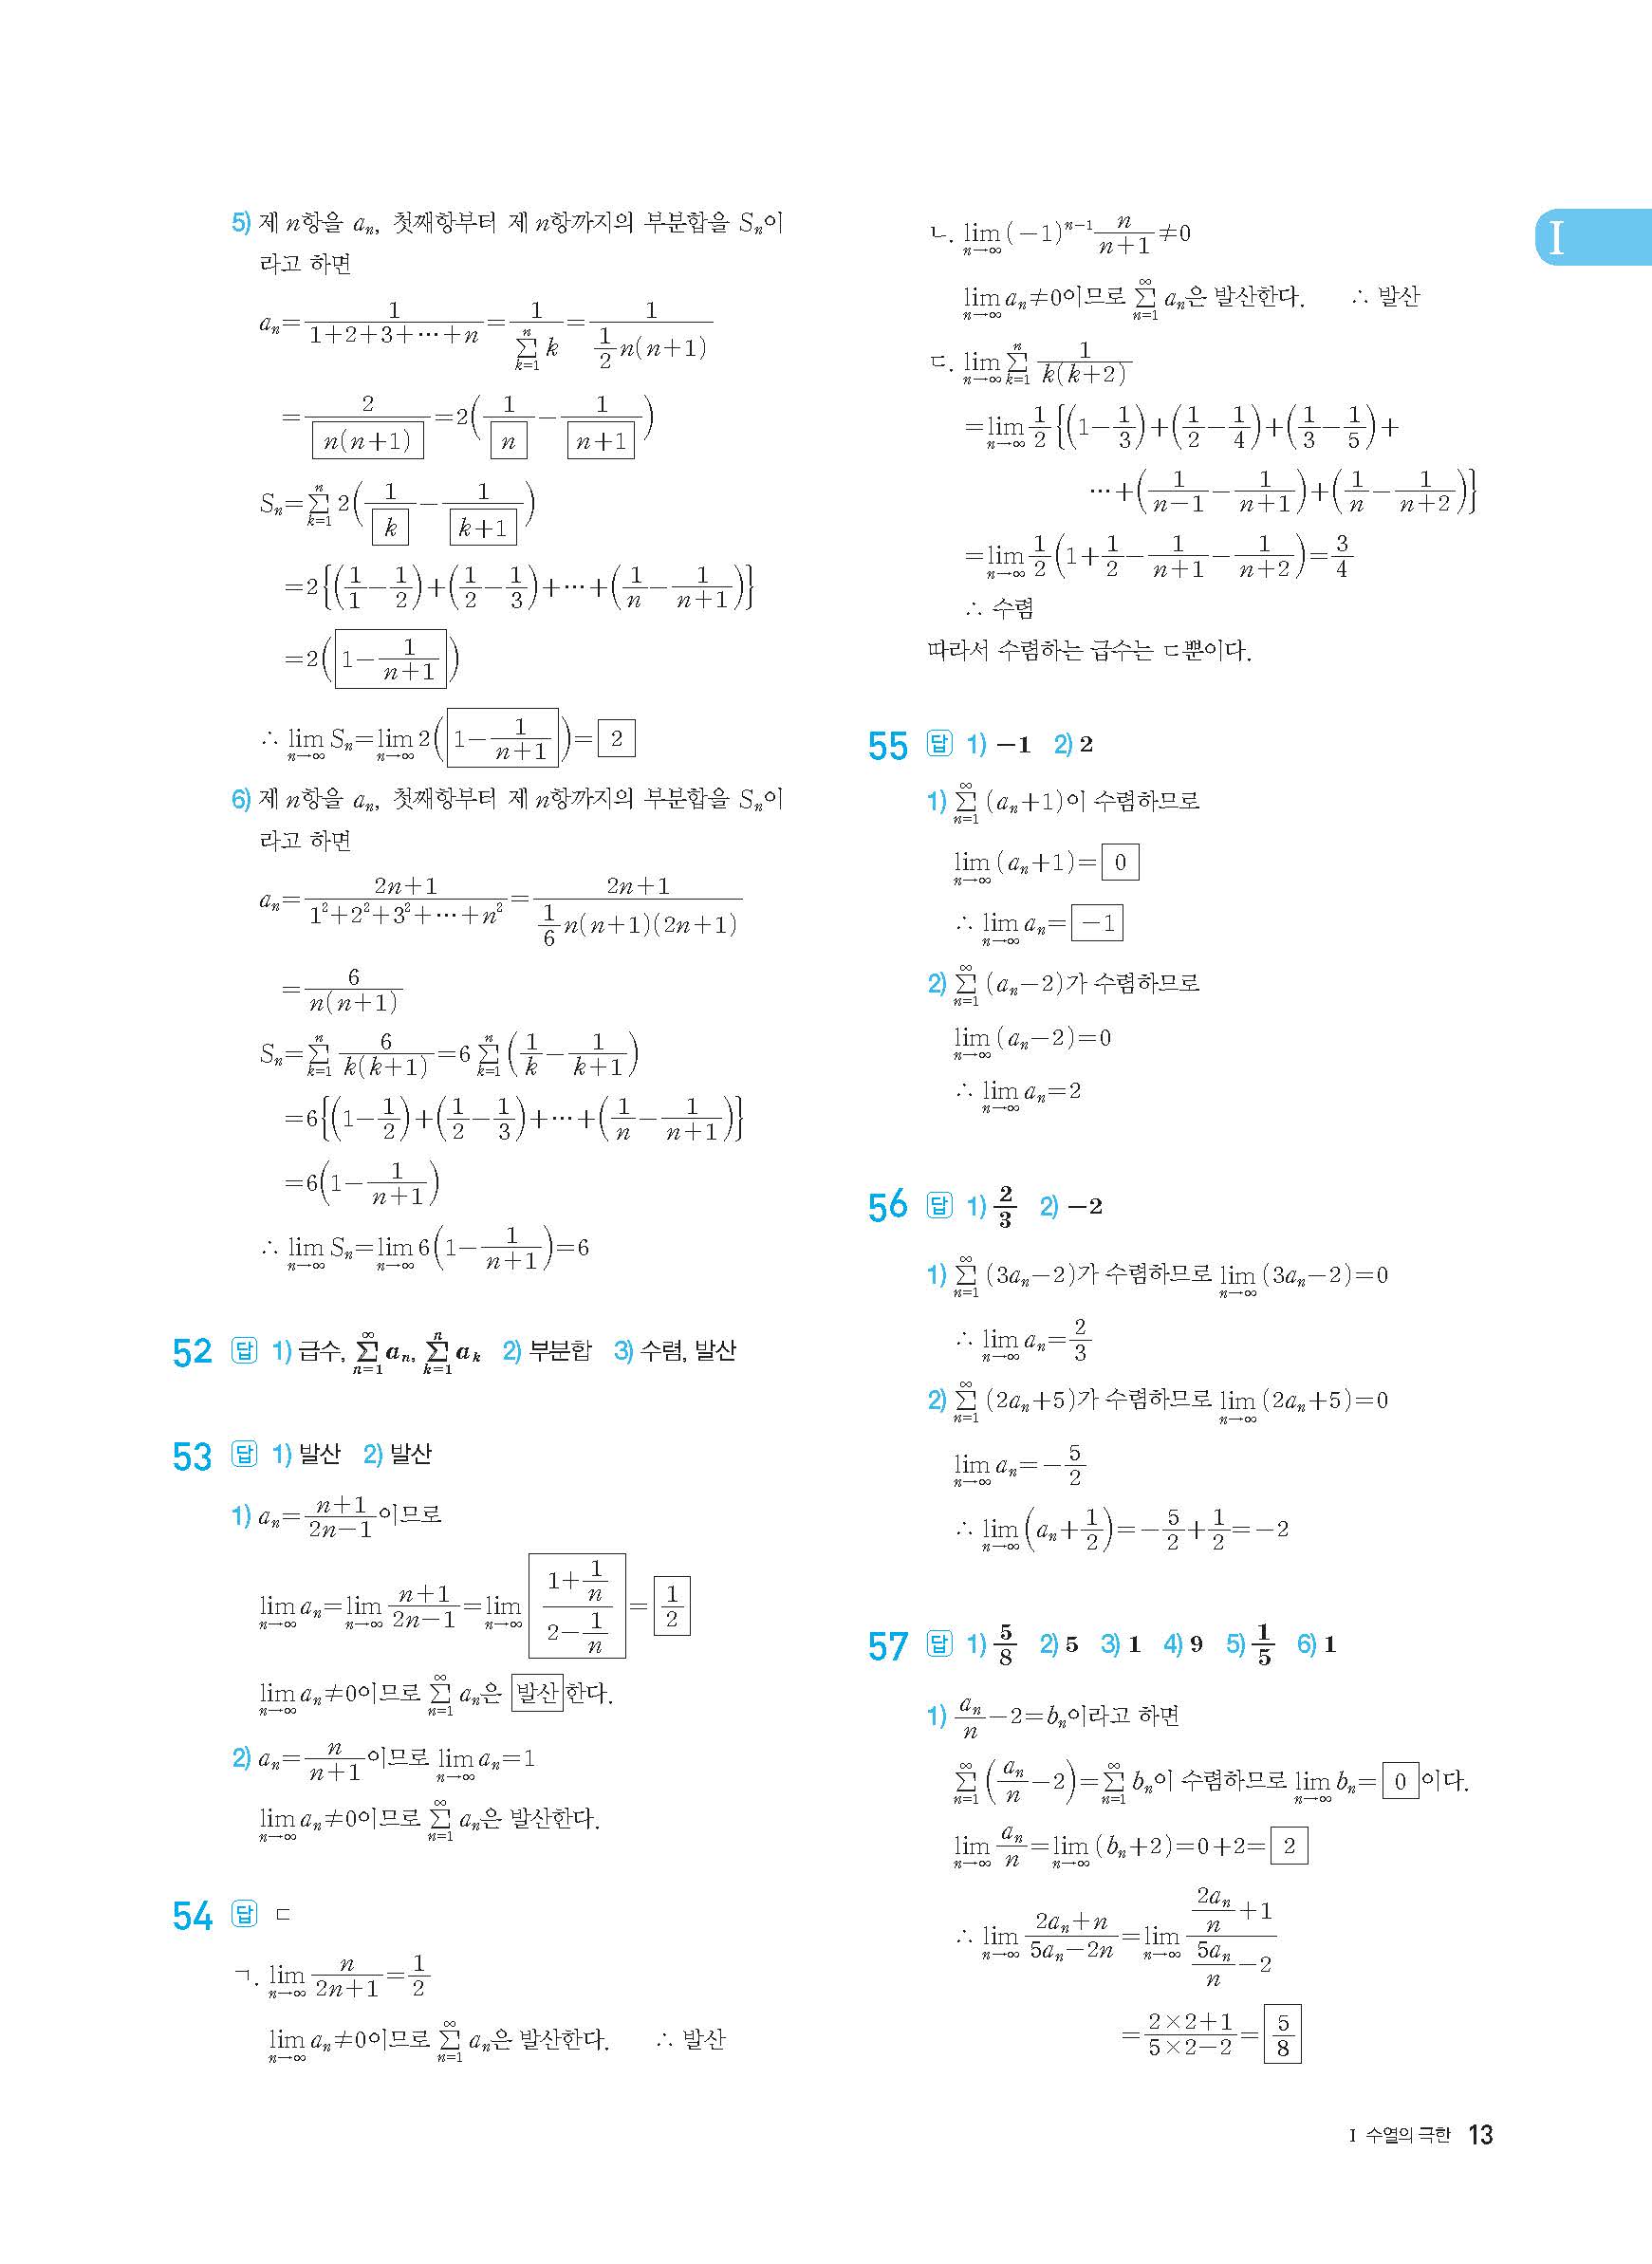 5) 제n항을 aₙ, 첫째항부터 제n항까지의 부분합을 Sₙ이
라고 하면
aₙ=1/(1+2+3+⋯+n)=1/(∑_{k=1}^{n} k)=1/((1/2)n(n+1))
=2/(n(n+1))=2(1/n−1/(n+1))
Sₙ=∑_{k=1}^{n} 2(1/k−1/(k+1))
=2{(1/1−1/2)+(1/2−1/3)+⋯+(1/n−1/(n+1))}
=2(1−1/(n+1))
∴ lim_{n→∞} Sₙ=lim_{n→∞} 2(1−1/(n+1))=2
6) 제n항을 aₙ, 첫째항부터 제n항까지의 부분합을 Sₙ이
라고 하면
aₙ=(2n+1)/(1²+2²+3²+⋯+n²)=(2n+1)/((1/6)n(n+1)(2n+1))
=6/(n(n+1))
Sₙ=∑_{k=1}^{n} 6/(k(k+1))=6∑_{k=1}^{n}(1/k−1/(k+1))
=6{(1−1/2)+(1/2−1/3)+⋯+(1/n−1/(n+1))}
=6(1−1/(n+1))
∴ lim_{n→∞} Sₙ=lim_{n→∞} 6(1−1/(n+1))=6
52 답 1) 급수, ∑_{n=1}^{∞} aₙ, ∑_{k=1}^{n} aₖ 2) 부분합 3) 수렴, 발산
53 답 1) 발산 2) 발산
1) aₙ=(n+1)/(2n−1)이므로
lim_{n→∞} aₙ=lim_{n→∞} (n+1)/(2n−1)=lim_{n→∞} (1+1/n)/(2−1/n)=1/2
lim_{n→∞} aₙ≠0이므로 ∑_{n=1}^{∞} aₙ은 발산한다.
2) aₙ=n/(n+1)이므로 lim_{n→∞} aₙ=1
lim_{n→∞} aₙ≠0이므로 ∑_{n=1}^{∞} aₙ은 발산한다.
54 답 ㄷ
ㄱ. lim_{n→∞} n/(2n+1)=1/2
lim_{n→∞} aₙ≠0이므로 ∑_{n=1}^{∞} aₙ은 발산한다. ∴ 발산
ㄴ. lim_{n→∞} (−1)ⁿ⁻¹ n/(n+1)≠0
lim_{n→∞} aₙ≠0이므로 ∑_{n=1}^{∞} aₙ은 발산한다. ∴ 발산
ㄷ. lim_{n→∞} ∑_{k=1}^{n} 1/(k(k+2))
=lim_{n→∞} 1/2{(1−1/3)+(1/2−1/4)+(1/3−1/5)+
⋯+(1/(n−1)−1/(n+1))+(1/n−1/(n+2))}
=lim_{n→∞} 1/2(1+1/2−1/(n+1)−1/(n+2))=3/4
∴ 수렴
따라서 수렴하는 급수는 ㄷ뿐이다.
55 답 1) −1 2) 2
1) ∑_{n=1}^{∞} (aₙ+1)이 수렴하므로
lim_{n→∞} (aₙ+1)=0
∴ lim_{n→∞} aₙ=−1
2) ∑_{n=1}^{∞} (aₙ−2)가 수렴하므로
lim_{n→∞} (aₙ−2)=0
∴ lim_{n→∞} aₙ=2
56 답 1) 2/3 2) −2
1) ∑_{n=1}^{∞} (3aₙ−2)가 수렴하므로 lim_{n→∞} (3aₙ−2)=0
∴ lim_{n→∞} aₙ=2/3
2) ∑_{n=1}^{∞} (2aₙ+5)가 수렴하므로 lim_{n→∞} (2aₙ+5)=0
lim_{n→∞} aₙ=−5/2
∴ lim_{n→∞} (aₙ+1/2)=−5/2+1/2=−2
57 답 1) 5/8 2) 5 3) 1 4) 9 5) 1/5 6) 1
1) aₙ/n−2=bₙ이라고 하면
∑_{n=1}^{∞} (aₙ/n−2)=∑_{n=1}^{∞} bₙ이 수렴하므로 lim_{n→∞} bₙ=0이다.
lim_{n→∞} aₙ/n=lim_{n→∞} (bₙ+2)=0+2=2
∴ lim_{n→∞} (2aₙ+n)/(5aₙ−2n)=lim_{n→∞} (2aₙ/n+1)/(5aₙ/n−2)
=(2×2+1)/(5×2−2)=5/8
I
I 수열의 극한 13